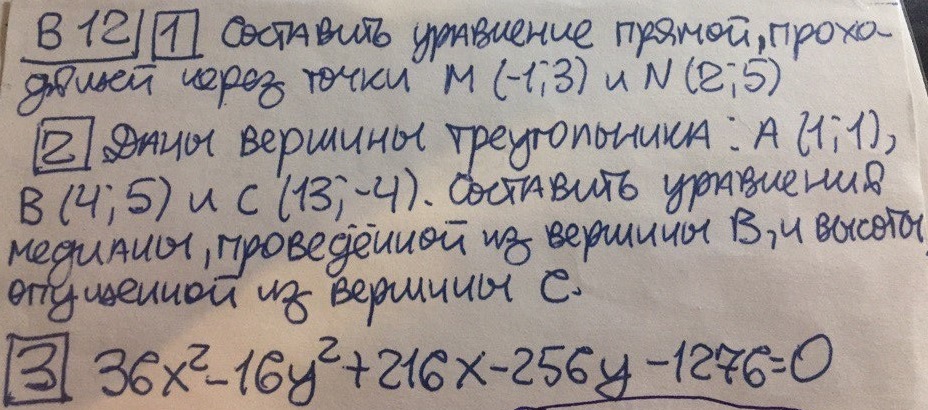 В 12 1 Составить уравнение прямой, прохо-
дящей через точки М (-1; 3) и N (2; 5)
2 Даны вершины треугольника: А (1; 1),
В (4; 5) и С (13; -4). Составить уравнения
медианы, проведённой из вершины В, и высоты,
опущенной из вершины С.
3 36x² - 16y² + 216x - 256y - 1276 = 0